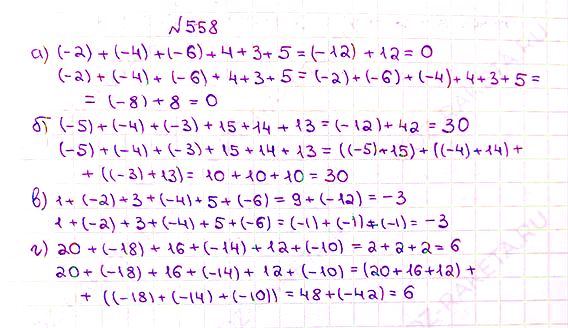 №558
а) (-2) + (-4) + (-6) + 4 + 3 + 5 = (-12) + 12 = 0
(-2) + (-4) + (-6) + 4 + 3 + 5 = (-2) + (-6) + (-4) + 4 + 3 + 5 =
= (-8) + 8 = 0
б) (-5) + (-4) + (-3) + 15 + 14 + 13 = (-12) + 42 = 30
(-5) + (-4) + (-3) + 15 + 14 + 13 = ((-5) + 15) + ((-4) + 14) +
+ ((-3) + 13) = 10 + 10 + 10 = 30
в) 1 + (-2) + 3 + (-4) + 5 + (-6) = 9 + (-12) = -3
1 + (-2) + 3 + (-4) + 5 + (-6) = (-1) + (-1) + (-1) = -3
г) 20 + (-18) + 16 + (-14) + 12 + (-10) = 2 + 2 + 2 = 6
20 + (-18) + 16 + (-14) + 12 + (-10) = (20 + 16 + 12) +
+ ((-18) + (-14) + (-10)) = 48 + (-42) = 6